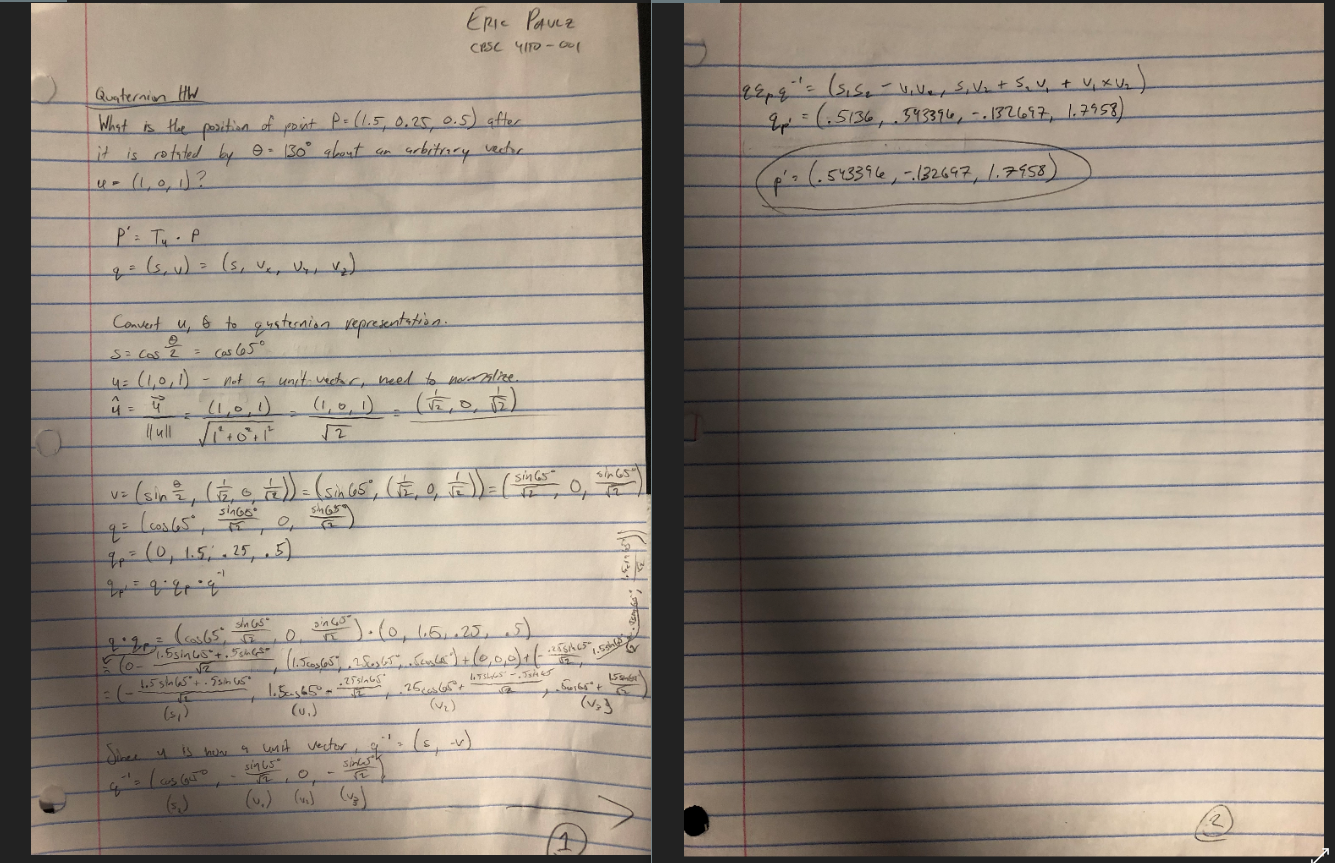 ERIC
CPSC 4110-001
Quaternion HW
What is the position of point P=(1.5, 0.25, 0.5) after
it is rotated by θ=130° about an arbitrary vector
u=(1,0,1)?
P' = Tu · P
q = (s,v) = (s, vx, vy, vz)
Convert u, θ to quaternion representation.
s = cos θ/2 = cos65°
u=(1,0,1) - not a unit vector, need to normalize.
û = u⃗/||u|| = (1,0,1)/√(1²+0²+1²) = (1,0,1)/√2 = (1/√2, 0, 1/√2)
v = (sin θ/2, (1/√2, 0, 1/√2)) = (sin65°, (1/√2, 0, 1/√2)) = (sin65°/√2, 0, sin65°/√2)
q = (cos65°, sin65°/√2, 0, sin65°/√2)
qp = (0, 1.5, .25, .5)
qp' = q · qp · q⁻¹
q·qp = (cos65°, sin65°/√2, 0, sin65°/√2) · (0, 1.5, .25, .5)
= (0 - (1.5sin65° + .5sin65°)/√2, (1.5cos65°, .25cos65°, .5cos65°) + (0,0,0) + (-.25sin65°/√2,
= (-(1.5sin65° + .5sin65°)/√2, 1.5cos65° - .25sin65°/√2, .25cos65° + (1.5sin65° - .5sin65°)/√2, .5cos65° + .25sin65°/√2)
(s₁) (v₁) (v₂) (v₃)
Since u is now a unit vector, q⁻¹ = (s, -v)
q⁻¹ = (cos65°, -sin65°/√2, 0, -sin65°/√2)
(s₂) (v₁) (v₂) (v₃)
1
q qp q⁻¹ = (s₁s₂ - v₁v₂, s₁v₂ + s₂v₁ + v₁×v₂)
qp' = (.5136, .543396, -.132697, 1.7958)
p' = (.543396, -.132697, 1.7958)
2